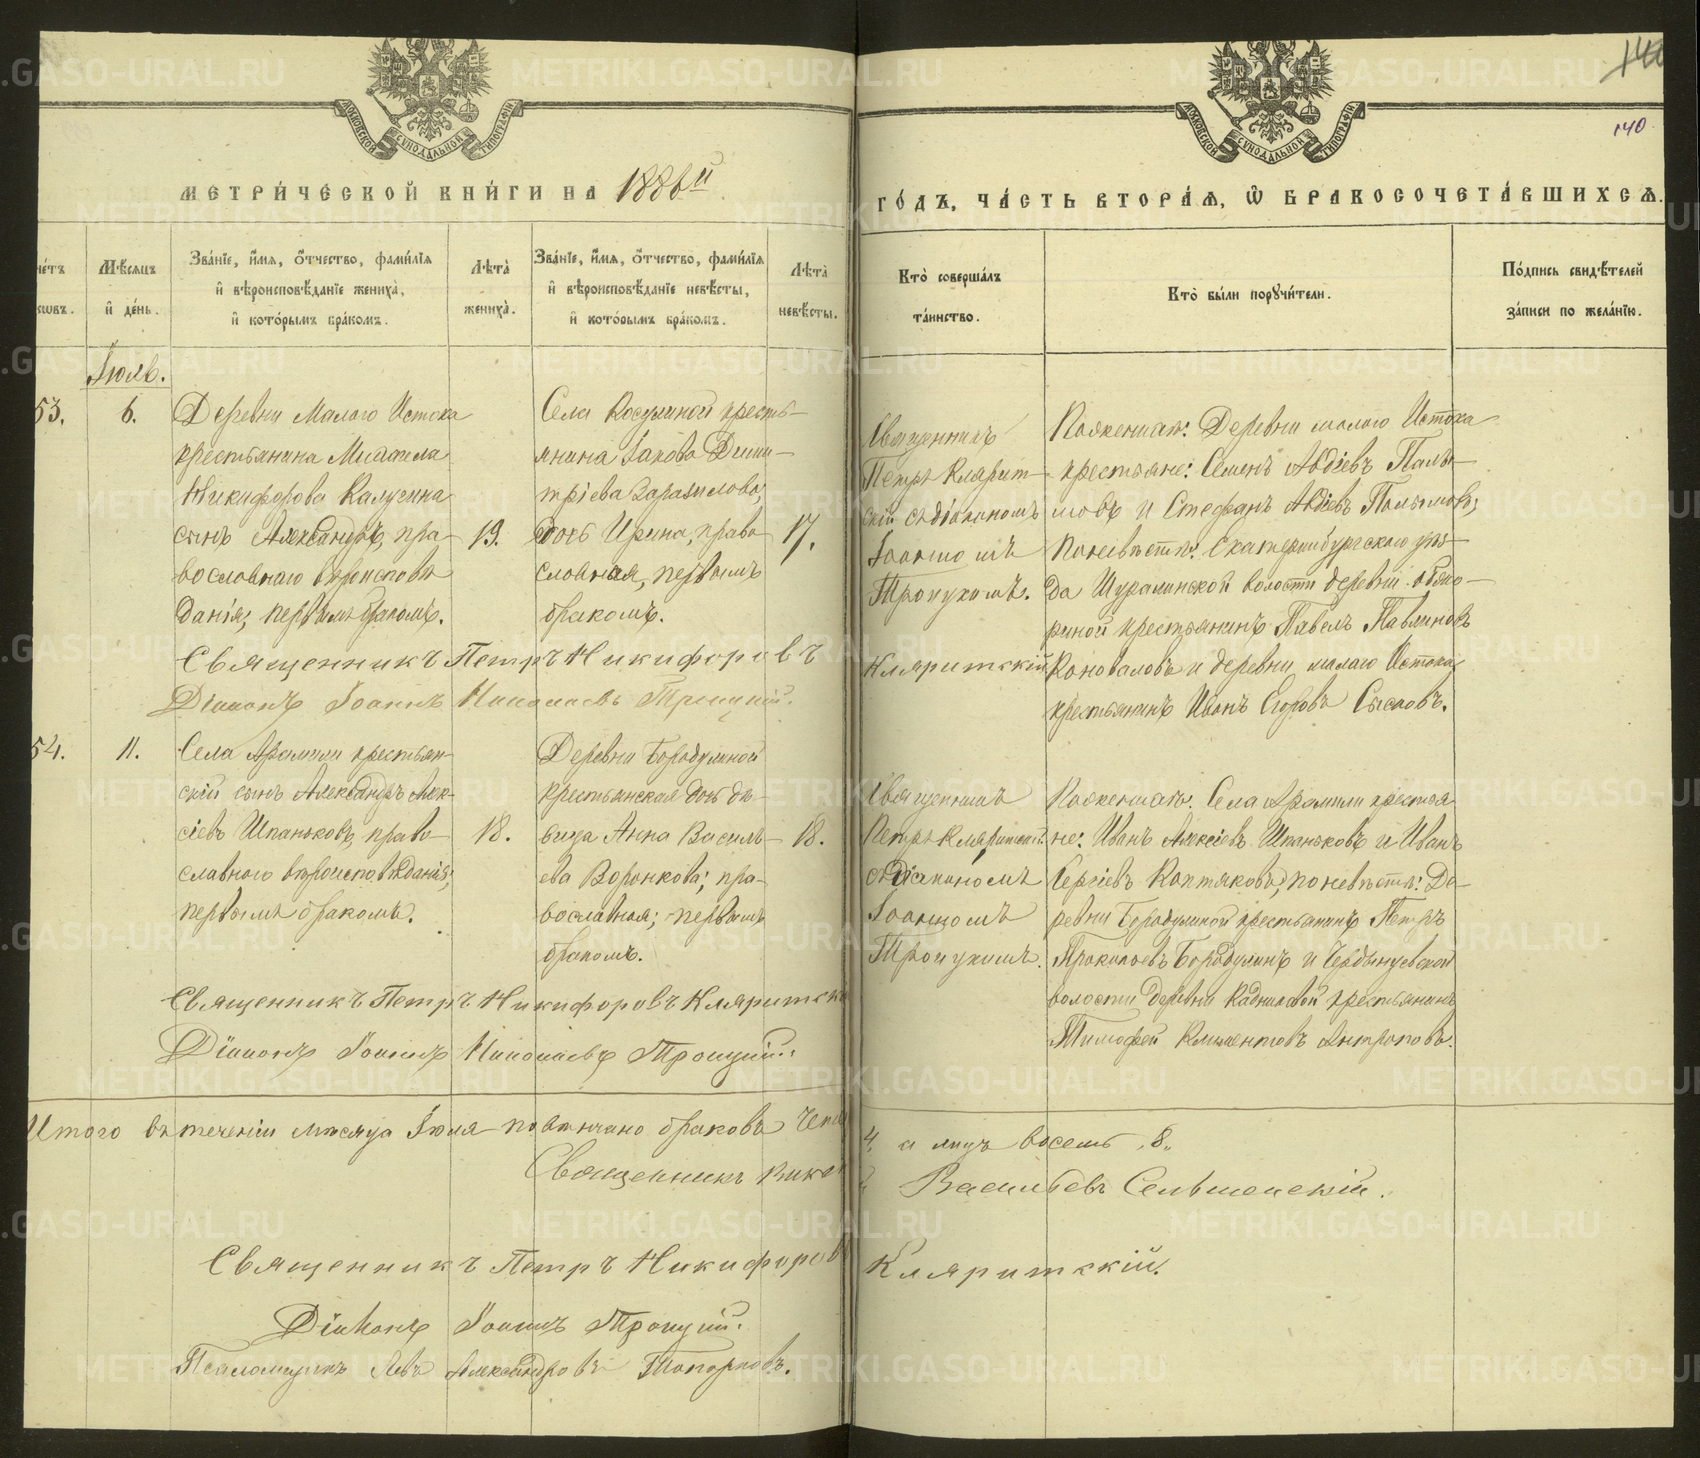 МЕТРИ́ЧЕСКОЙ КНИ́ГИ НА 1886й
ГО́ДЪ, ЧА́СТЬ ВТОРА́Я, Ѽ БРАКОСОЧЕТА́ВШИХСЯ.
МОСКОВСКОЙ СУНОДАЛЬНОЙ ТИПОГРАФІИ
МОСКОВСКОЙ СУНОДАЛЬНОЙ ТИПОГРАФІИ
140
140
Мѣ́сяцъ
и҆ де́нь.
Зва́нїе, и҆́мя, ѻ҆́тчество, фами́лїя
и҆ вѣроисповѣ́данїе жениха̀,
и҆ кото́рымъ бра́комъ.
Лѣта̀
жениха̀.
Зва́нїе, и҆́мя, ѻ҆́тчество, фами́лїя
и҆ вѣроисповѣ́данїе невѣ́сты,
и҆ кото́рымъ бра́комъ.
Лѣта̀
невѣ́сты.
Кто̀ соверша́лъ
та́инство.
Кто̀ бы́ли порꙋчи́тели.
По́дпись свидѣ́телей
за́писи по жела́нїю.
Іюль.
53.
6.
Деревни Малаго Истока
крестьянина Михаила
Никифорова Калугина
сынъ Александръ, пра-
вославнаго вѣроисповѣ
данія, первымъ бракомъ.
19.
Села Косулиной кресть-
янина Іакова Дими-
тріева
дочь Ирина, право
славная, первымъ
бракомъ.
17.
Священникъ
Петръ Кляритс-
кій съ діакономъ
Іоанномъ
Троицкимъ.
По женихѣ: Деревни малаго Истока
крестьяне: Семенъ Авдіевъ Палы-
мовъ и Стефанъ Авдіевъ Палымовъ;
По невѣстѣ: Екатеринбургскаго уѣз-
да волости деревни
крестьянинъ Павелъ Павлиновъ
Коноваловъ и деревни малаго Истока
крестьянинъ Иванъ Егоровъ Сысковъ.
Священникъ Петръ Никифоровъ Кляритскій
Діаконъ Іоаннъ Николаевъ Троицкій.
54.
11.
Села Арамили крестьян-
скій сынъ Александръ Алек-
сіевъ Шпаньковъ, право
славнаго вѣроисповѣданія,
первымъ бракомъ.
18.
Деревни Бородулиной
крестьянская дочь дѣ-
вица Анна Василь-
ева Воронкова; пра-
вославная; первымъ
бракомъ.
18.
Священникъ
Петръ Кляритскій
съ Діакономъ
Іоанномъ
Троицкимъ.
По женихѣ: Села Арамили крестья
не: Иванъ Алексіевъ Шпаньковъ и Иванъ
Сергіевъ Коптяковъ, по невѣстѣ: Де-
ревни Бородулиной крестьянинъ Петръ
Прокопьевъ Бородулинъ и
волости деревни крестьянинъ
Тимофей Климентовъ Антроповъ.
Священникъ Петръ Никифоровъ Кляритскі
Діаконъ Іоаннъ Николаевъ Троицкій.
Итого въ теченіи мѣсяца Іюля повѣнчано браковъ 4. а лицъ восемь, 8.
Священникъ Васильевъ
Священникъ Петръ Никифоровъ Кляритскій.
Діаконъ Іоаннъ Троицкій.
Псаломщикъ Левъ Александровъ Топорковъ.
METRIKI.GASO-URAL.RU